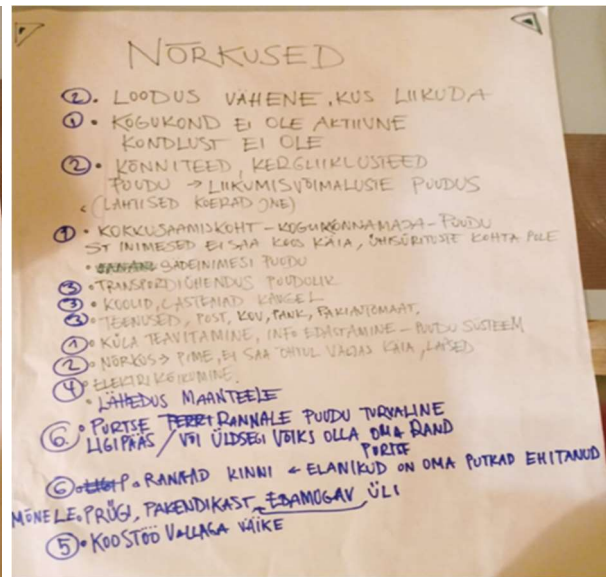 NÕRKUSED
②. LOODUS VÄHENE, KUS LIIKUDA
①• KOGUKOND EI OLE AKTIIVNE
KONDLUST EI OLE
②• KÕNNITEED, KERGLIIKLUSTEED
PUUDU → LIIKUMISVÕIMALUSTE PUUDUS
(LAHTISED KOERAD JNE)
①• KOKKUSAAMISKOHT - KOGUKONNAMAJA - PUUDU
ST INIMESED EI SAA KOOS KÄIA, ÜHISÜRITUSTE KOHTA POLE
• SÄDEINIMESI PUUDU
③• TRANSPORDIÜHENDUS PUUDULIK
③• KOOLID, LASTEAIAD KAUGEL
③• TEENUSED, POST, KOV, PANK, PAKIAUTOMAAT.
①• KÜLA TEAVITAMINE, INFO EDASTAMINE - PUUDU SÜSTEEM
②• NÕRKUS → PIME, EI SAA ÕHTUL VÄLJAS KÄIA, LAPSED
④• ELEKTRI KÕIKUMINE.
• LÄHEDUS MAANTEELE
⑥• PURTSE RANNALE PUUDU TURVALINE
LIGIPÄÄS / VÕI ÜLDSEGI VÕIKS OLLA OMA RAND
PURTSE
⑥• RANNAD KINNI ← ELANIKUD ON OMA PUTKAD EHITANUD
MÕNELE. PRÜGI, PAKENDIKAST, EBAMUGAV, ÜLI
⑤• KOOSTÖÖ VALLAGA VÄIKE